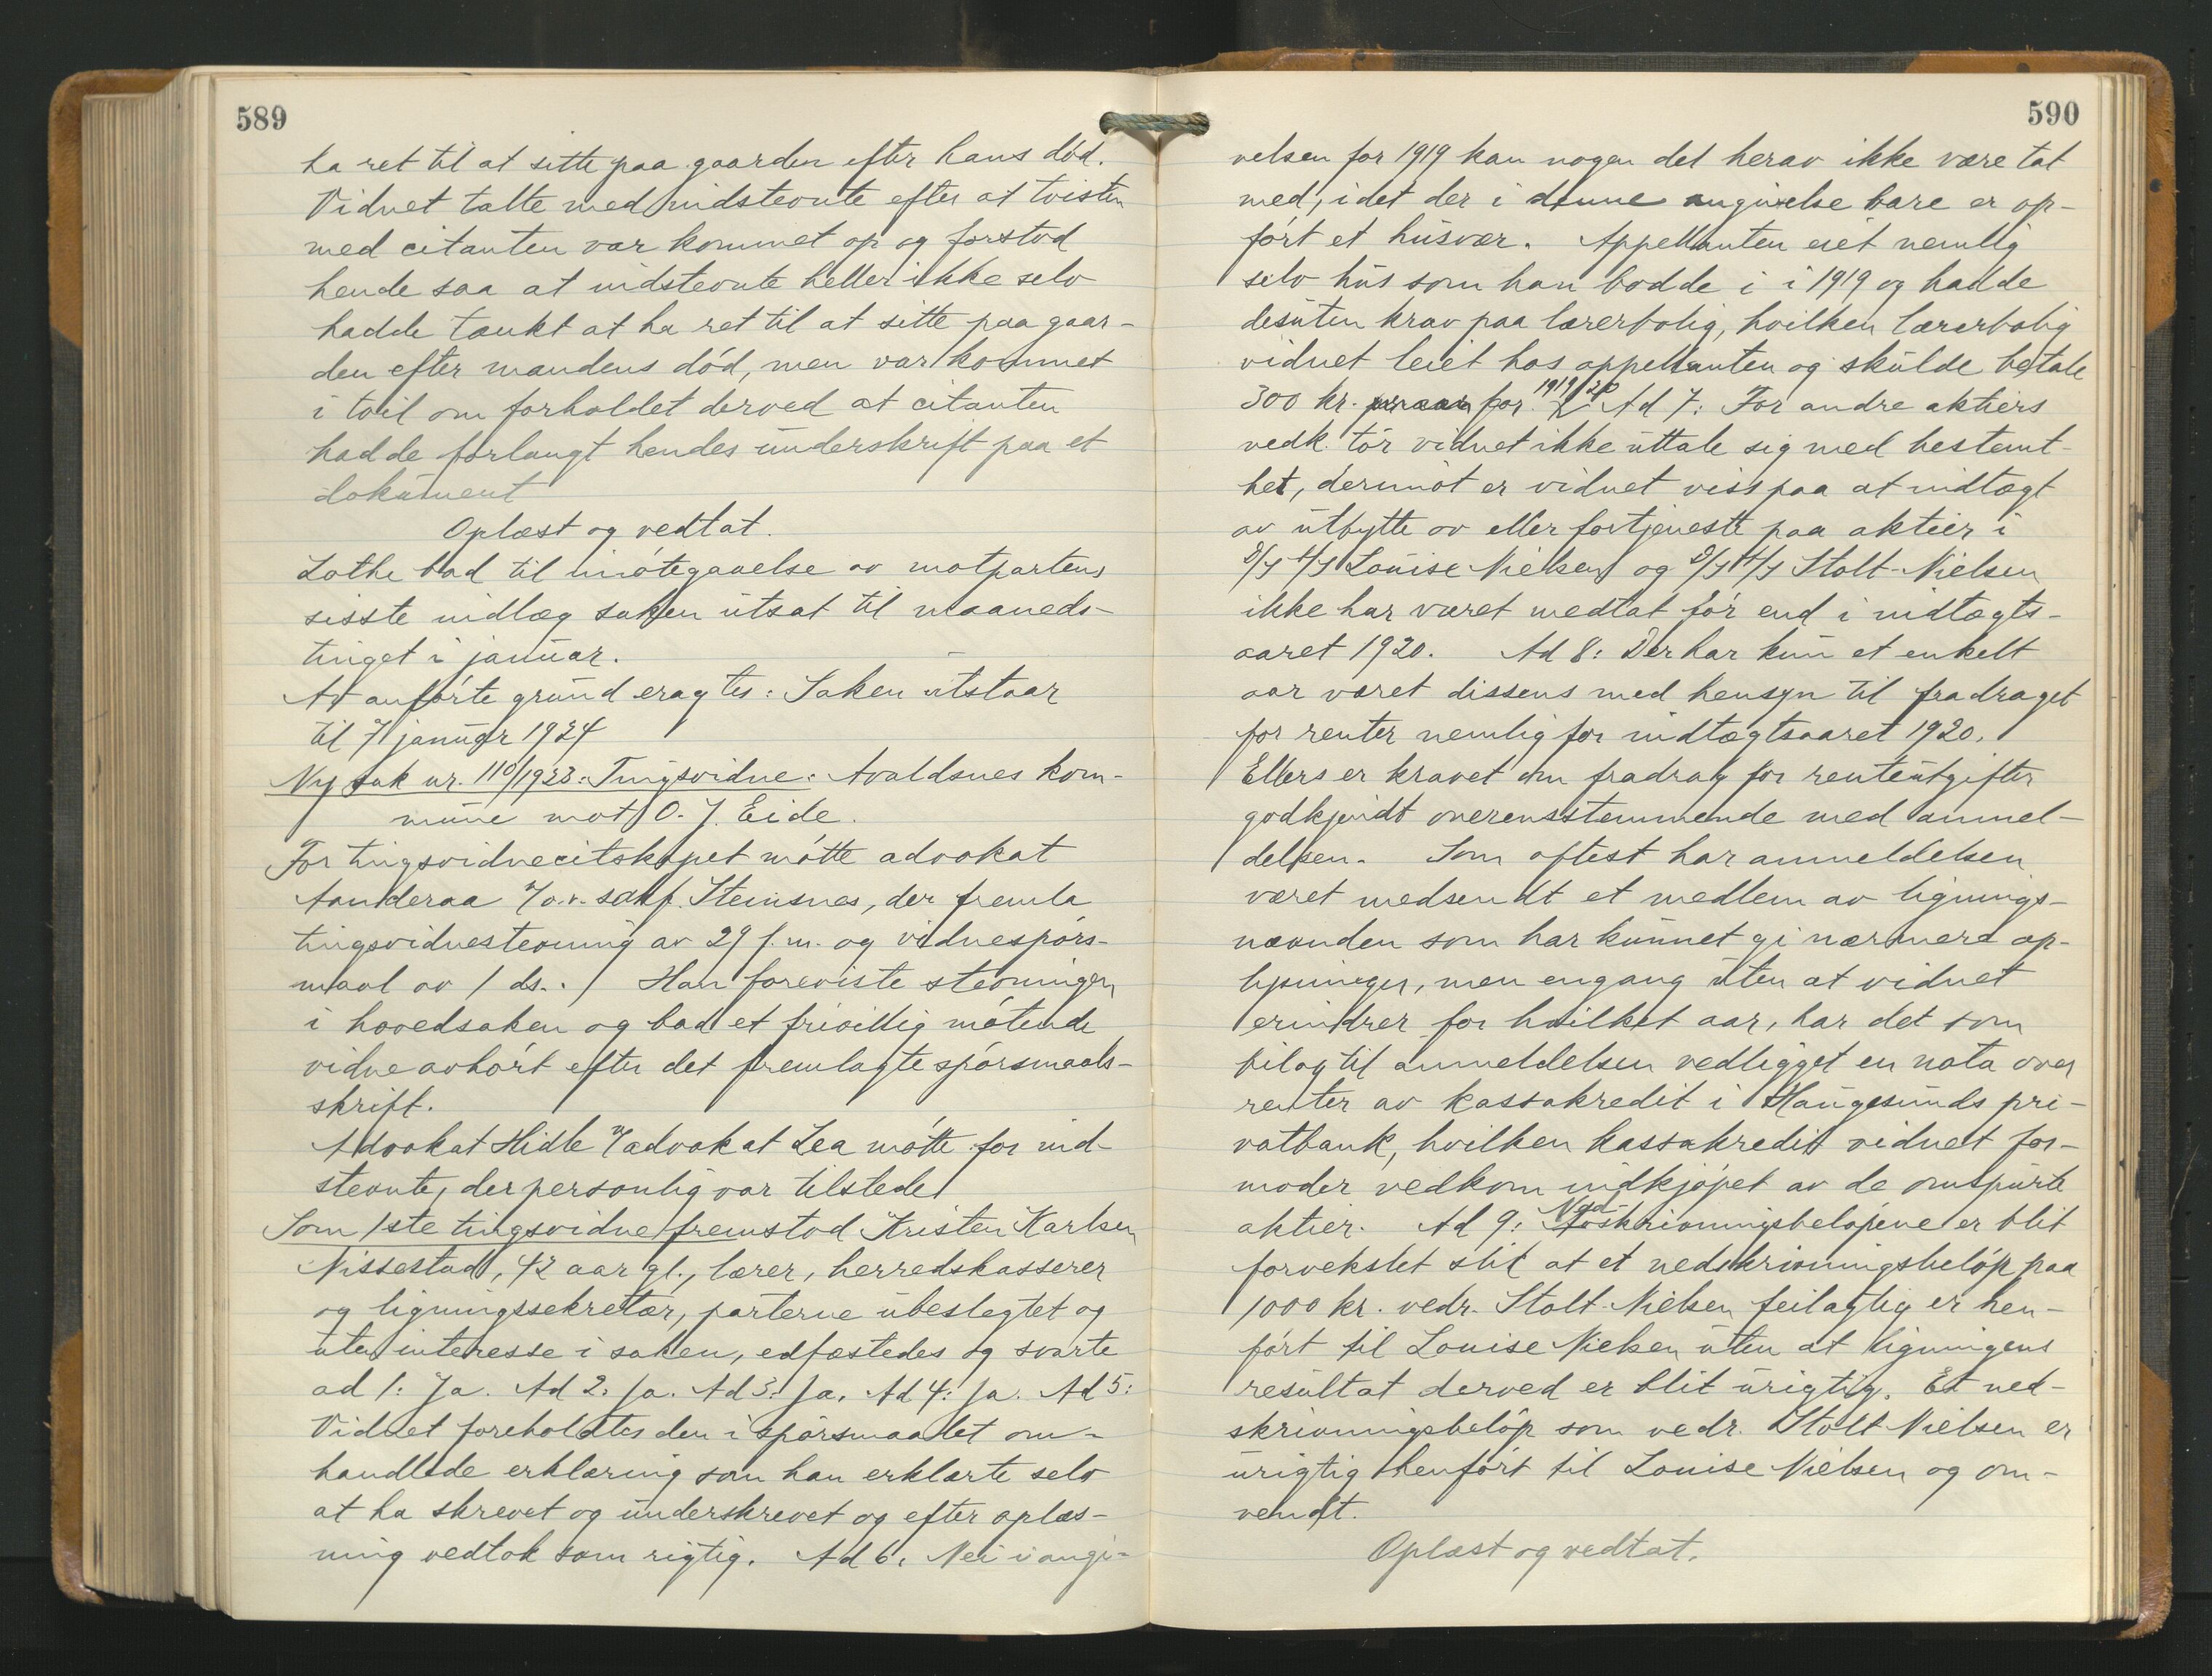 589
ha ret til at sitte paa gaarden efter hans død.
Vidnet talte med indstevnte efter at tvisten
med citanten var kommet op og forstod
hende saa at indstevnte heller ikke selv
hadde tænkt at ha ret til at sitte paa gaar-
den efter mandens död, men var kommet
i tvil om forholdet derved at citanten
hadde forlangt hendes underskrift paa et
dokument
Oplæst og vedtat.
Lothe bad til imötegaaelse av motpartens
sisste indlæg saken utsat til maaneds-
tinget i januar.
Av anförte grund eragtes: Saken utstaar
til 7 januar 1924
Ny sak nr. 110/1923: Tingsvidne: Avaldsnes kom-
mune mot O. J. Eide.
For tingsvidnecitskapet mötte advokat
Aanderaa v/o.r. sakf. Steinsnes, der fremla
tingsvidnestevning av 29 f.m. og vidnespörs-
maal av 1 ds. Han foreviste stevningen
i hovedsaken og bad et frivillig mötende
vidne avhört efter det fremlagte spörsmaals-
skrift.
Advokat Hidle v/advokat Lea mötte for ind-
stevnte, der personlig var tilstede
Som 1ste tingsvidne fremstod Kristen Karlsen
Nissestad, 42 aar gl., lærer, herredskasserer
og ligningssekretær, parterne ubeslegtet og
uten interesse i saken, edfæstedes og svarte
ad 1: Ja. Ad 2: Ja. Ad 3: Ja. Ad 4: Ja. Ad 5:
Vidnet foreholdtes den i spörsmaalet om-
handlede erklæring som han erklærte selv
at ha skrevet og underskrevet og efter oplæs-
ning vedtok som rigtig. Ad 6. Nei i angi-
590
velsen for 1919 kan nogen del herav ikke være tat
med, idet der i denne angivelse bare er op-
fört et husvær. Appellanten eiet nemlig
selv hus som han bodde i i 1919 og hadde
desuten krav paa lærerbolig, hvilken lærerbolig
vidnet leiet hos appellanten og skulde betale
300 kr. for 1919/20 Ad 7: For andre aktiers
vedk. tör vidnet ikke uttale sig med bestemt-
het, derimot er vidnet viss paa at indtægt
av utbytte av eller fortjeneste paa aktier i
D/S A/S Louise Nielsen og D/S A/S Stolt-Nielsen
ikke har været medtat för end i indtægts-
aaret 1920. Ad 8: Der har kun et enkelt
aar været dissens med hensyn til fradraget
for renter nemlig for indtægtsaaret 1920.
Ellers er kravet om fradrag for renteutgifter
godkjendt overensstemmende med anmel-
delsen. Som oftest har anmeldelsen
været medsendt et medlem av lignings-
nævnden som har kunnet gi nærmere op-
lysninger, men engang uten at vidnet
erindrer for hvilket aar, har det som
bilag til anmeldelsen vedligget en nota over
renter av kassakredit i Haugesunds pri-
vatbank, hvilken kassakredit vidnet for-
moder vedkom indkjöpet av de omspurte
aktier. Ad 9: Nedskrivningsbelöpene er blit
forvekslet slik at et nedskrivningsbelöp paa
1000 kr. vedr. Stolt-Nielsen feilagtig er hen-
fört til Louise Nielsen uten at ligningens
resultat derved er blit urigtig. Et ned-
skrivningsbelöp som vedr. Stolt-Nielsen er
urigtig henfört til Louise Nielsen og om-
vendt.
Oplæst og vedtat.